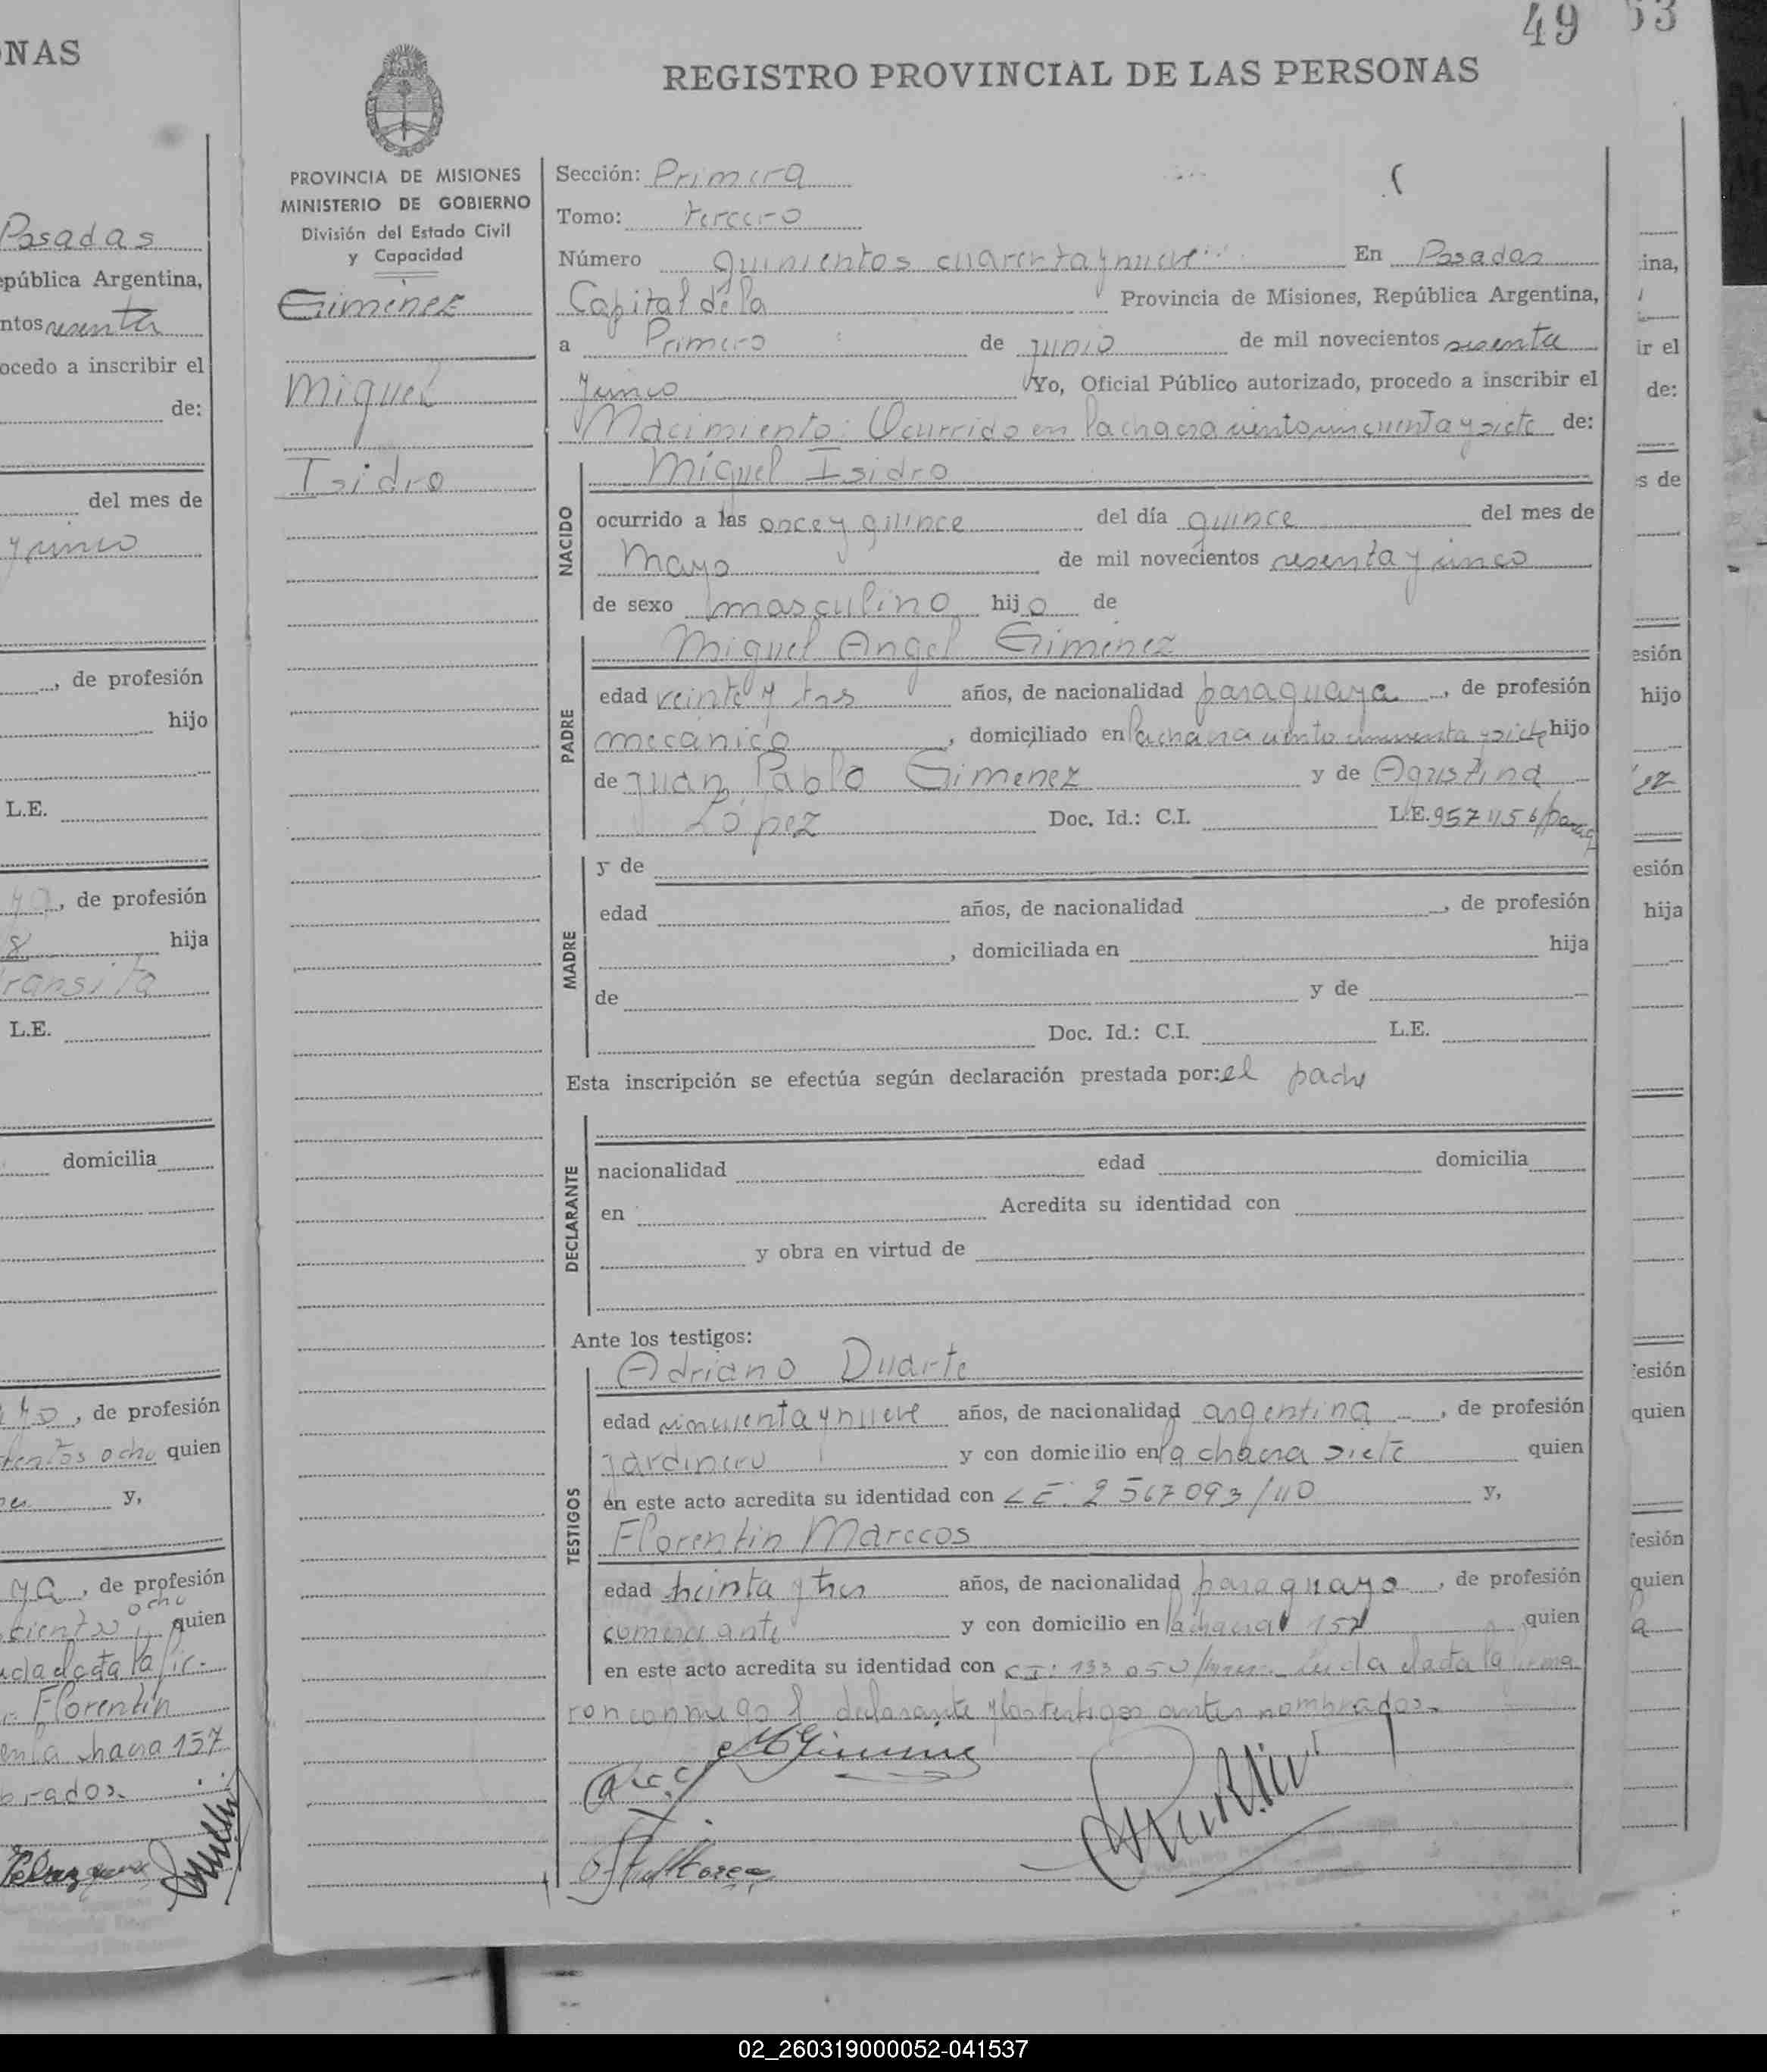 49
53
NAS
REGISTRO PROVINCIAL DE LAS PERSONAS
PROVINCIA DE MISIONES
MINISTERIO DE GOBIERNO
División del Estado Civil
y Capacidad
Gimenez
Miguel
Isidro
Sección: Primera
Tomo: tercero
Número quinientos cuarenta y nueve En Posadas
Capital de la Provincia de Misiones, República Argentina,
a Primero de junio de mil novecientos sesenta
y unco Yo, Oficial Público autorizado, procedo a inscribir el
Nacimiento: Ocurrido en la chacra ciento cincuenta y siete de:
NACIDO
Miguel Isidro
ocurrido a las once y quince del día quince del mes de
Mayo de mil novecientos sesenta y unco
de sexo masculino hijo de
PADRE
Miguel Angel Gimenez
edad veinte y tres años, de nacionalidad paraguaya, de profesión
mecanico, domiciliado en la chacra ciento cincuenta y siete hijo
de Juan Pablo Gimenez y de Agustina
López Doc. Id.: C.I. L.E.
MADRE
y de
edad años, de nacionalidad , de profesión
, domiciliada en hija
de y de
Doc. Id.: C.I. L.E.
Esta inscripción se efectúa según declaración prestada por: el padre
DECLARANTE
nacionalidad edad domicilia
en Acredita su identidad con
y obra en virtud de
Ante los testigos:
TESTIGOS
Adriano Duarte
edad cincuenta y nueve años, de nacionalidad argentina, de profesión
jardinero y con domicilio en la chacra siete quien
en este acto acredita su identidad con L.E. 2567093/40 y,
Florentin Marecos
edad treinta y tres años, de nacionalidad paraguayo, de profesión
comerciante y con domicilio en la chacra 157 quien
en este acto acredita su identidad con C.I: 133050 Leida el acta la firma
ron conmigo el declarante y los testigos antes nombrados.
Posadas
epública Argentina,
ntos sesenta
ocedo a inscribir el
de:
del mes de
y unco
, de profesión
hijo
L.E.
, de profesión
hija
ransita
L.E.
domicilia
, de profesión
ocho quien
y,
ya, de profesión
ocho
quien
Florentin
en la chacra 157
brados.
ina,
ir el
de:
s de
esión
hijo
ez
esión
hija
fesión
quien
fesión
quien
02_260319000052-041537